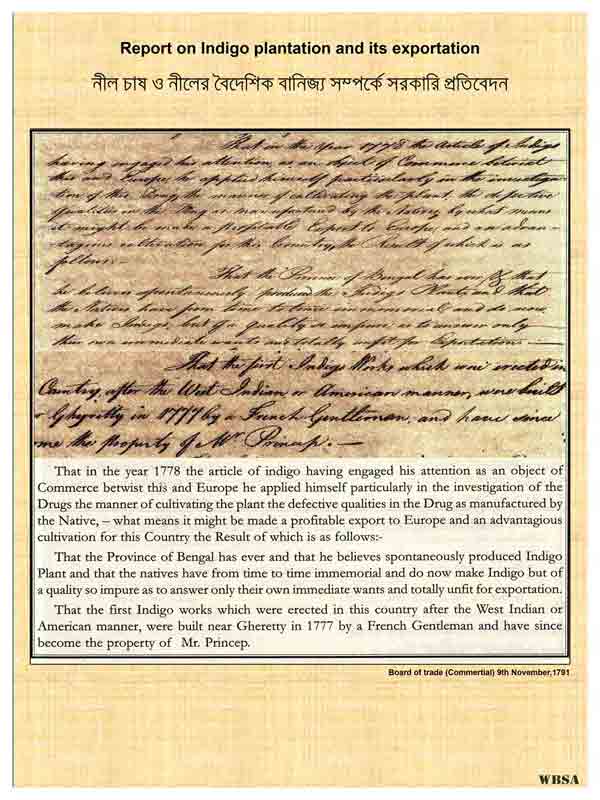 Report on Indigo plantation and its exportation
নীল চাষ ও নীলের বৈদেশিক বানিজ্য সম্পর্কে সরকারি প্রতিবেদন
That in the year 1778 the Article of Indigo
having engaged his attention, as an object of Commerce betwixt
this and Europe, he applied himself particularly in the investiga-
tion of this Drug, the manner of cultivating the plant, the defective
qualities in the Drug as manufactured by the Natives, by what means
it might be made a profitable Export to Europe, and an advan-
tagious cultivation for this Country, the Result of which is as
follows.-
That the Province of Bengal has ever & that
he believes spontaneously produced the Indigo Plant, and that
the Natives have from time to time immemorial, and do now
make Indigo, but of a quality so impure as to answer only
their own immediate wants and totally unfit for Exportation.-
That the first Indigo Works which were erected in
Country, after the West Indian or American manner, were built
Gheretty in 1777 by a French Gentleman, and have since
me the property of Mr Princep.-
That in the year 1778 the article of indigo having engaged his attention as an object of
Commerce betwist this and Europe he applied himself particularly in the investigation of the
Drugs the manner of cultivating the plant the defective qualities in the Drug as manufactured by
the Native, – what means it might be made a profitable export to Europe and an advantagious
cultivation for this Country the Result of which is as follows:-
That the Province of Bengal has ever and that he believes spontaneously produced Indigo
Plant and that the natives have from time to time immemorial and do now make Indigo but of
a quality so impure as to answer only their own immediate wants and totally unfit for exportation.
That the first Indigo works which were erected in this country after the West Indian or
American manner, were built near Gheretty in 1777 by a French Gentleman and have since
become the property of Mr. Princep.
Board of trade (Commertial) 9th November,1791
WBSA